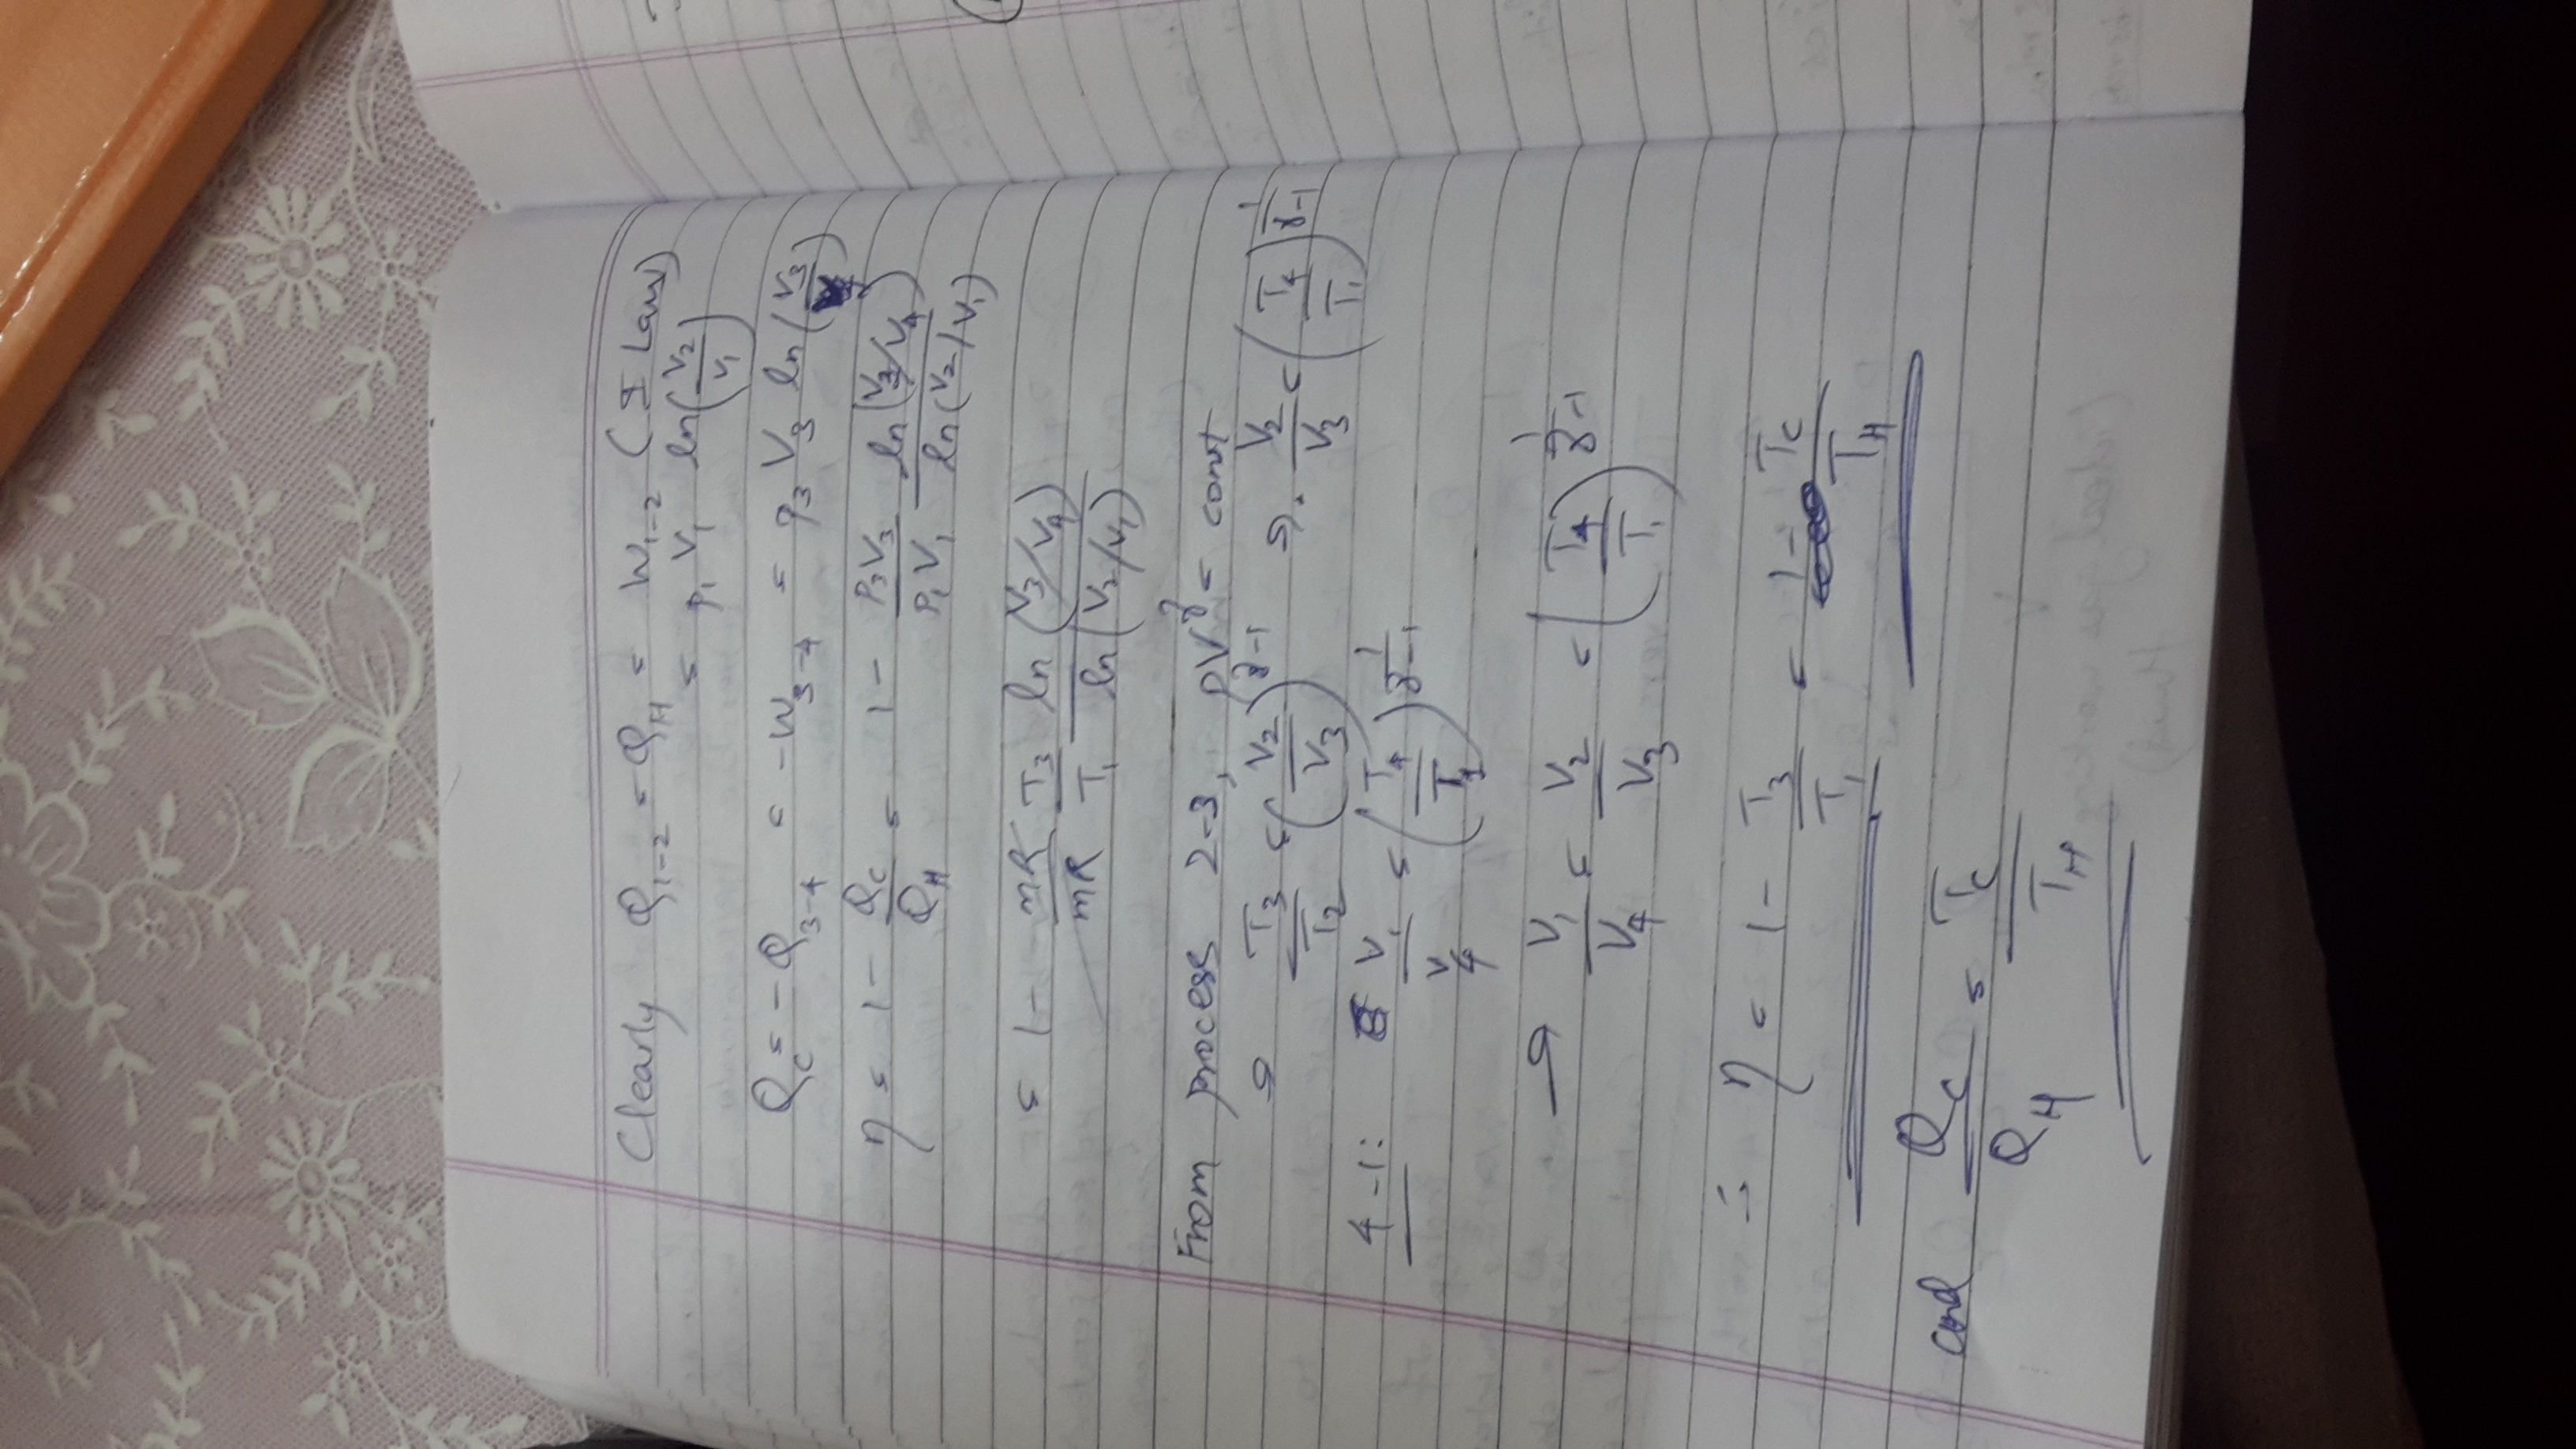 Clearly Q₁₋₂ = Q_H = W₁₋₂ (I Law)
= p₁ V₁ ln(V₂/V₁)
Q_C = -Q₃₋₄ = -W₃₋₄ = p₃ V₃ ln(V₃/V₄)
η = 1 - Q_C/Q_H = 1 - P₃V₃/P₁V₁ ln(V₃/V₄)/ln(V₂/V₁)
= 1 - mR/mR T₃/T₁ ln(V₃/V₄)/ln(V₂/V₁)
From process 2-3, pV^γ = const
⇒ T₃/T₂ = (V₂/V₃)^(γ-1) ⇒. V₂/V₃ = (T₄/T₁)^(1/(γ-1))
4-1: V₁/V₄ = (T₄/T₁)^(1/(γ-1))
⇒ V₁/V₄ = V₂/V₃ = (T₄/T₁)^(1/(γ-1))
∴ η = 1 - T₃/T₁ = 1 - T_C/T_H
and Q_C/Q_H = T_C/T_H